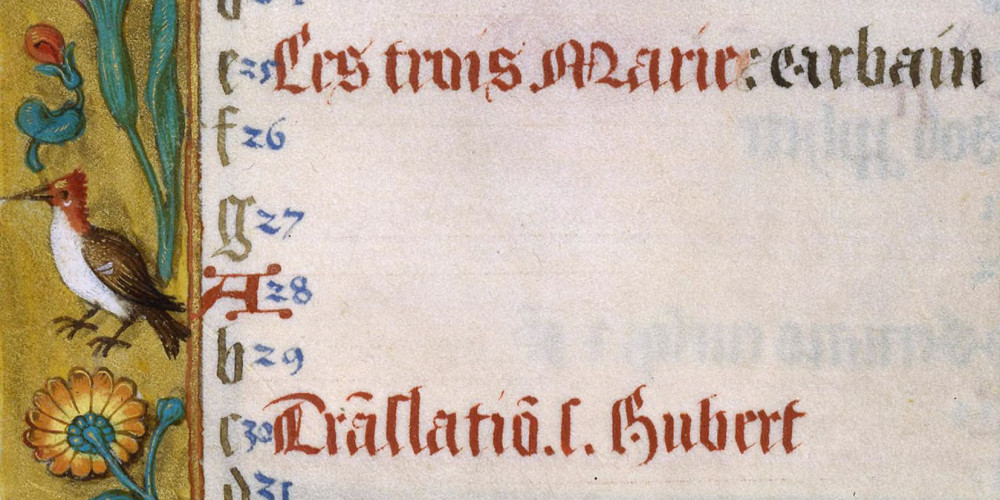 e 25 Les trois Marie: Urbain
f 26
g 27
A 28
b 29
c 30 Trãslatiõ. s. Hubert
d 31